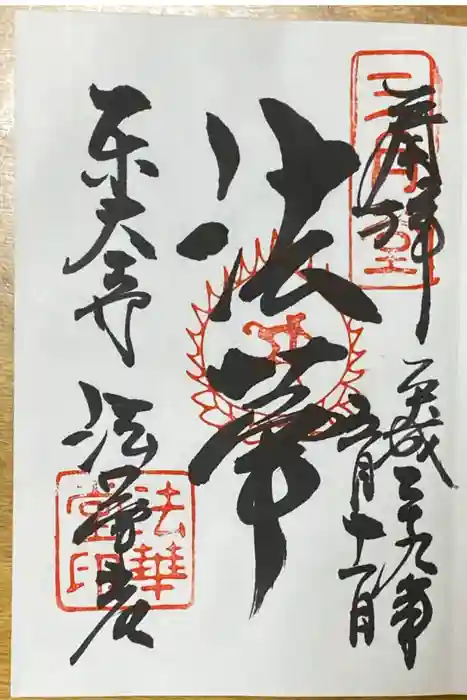 奉拝
三月堂
平成二十九年
五月十一日
法華
東大寺
法華堂
法華堂印